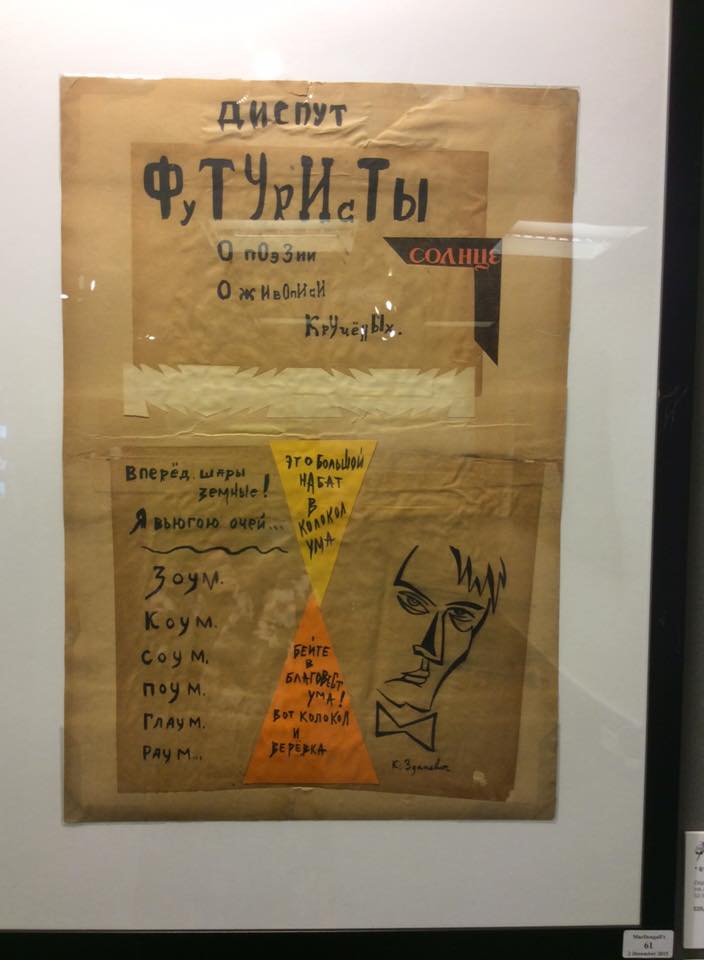 ДИСПУТ
ФУТУРИСТЫ
О ПОЭЗИИ
О ЖИВОПИСИ
КРУЧЁНЫХ.
СОЛНЦЕ
Вперёд шары
земные!
Я вьюгою очей...
Зоум.
Коум.
Соум.
Поум.
Глаум.
Раум...
ЭТО БОЛЬШОЙ
НАБАТ
В
КОЛОКОЛ
УМА
БЕЙТЕ
В
БЛАГОВЕСТ
УМА!
ВОТ КОЛОКОЛ
И
ВЕРЁВКА
К. Зданевич
MacDougall's
61
2 December 2015